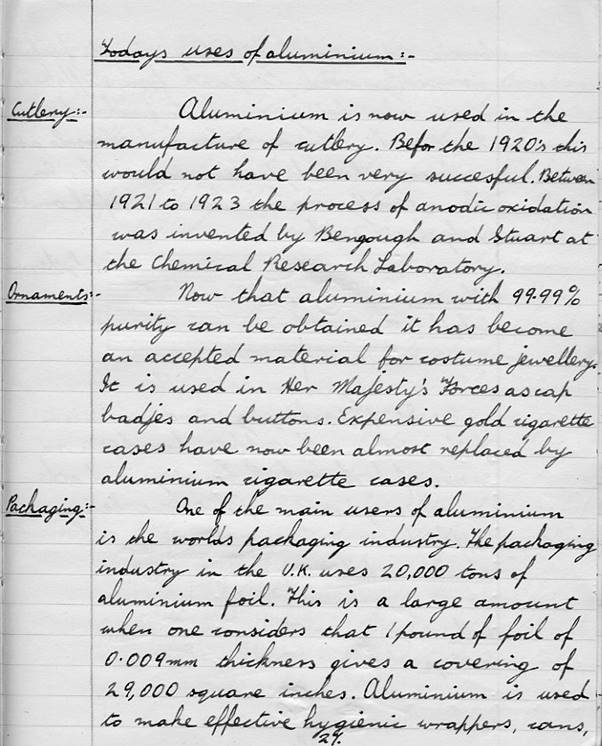 Todays uses of aluminium:-
Cutlery:- Aluminium is now used in the
manufacture of cutlery. Befor the 1920's this
would not have been very succesful. Between
1921 to 1923 the process of anodic oxidation
was invented by Bengough and Stuart at
the Chemical Research Laboratory.
Ornaments:- Now that aluminium with 99.99%
purity can be obtained it has become
an accepted material for costume jewellery.
It is used in Her Majesty's Forces as cap
badjes and buttons. Expensive gold cigarette
cases have now been almost replaced by
aluminium cigarette cases.
Packaging:- One of the main users of aluminium
is the worlds packaging industry. The packaging
industry in the U.K. uses 20,000 tons of
aluminium foil. This is a large amount
when one considers that 1 pound of foil of
0.009mm thickness gives a covering of
29,000 square inches. Aluminium is used
to make effective hygienic wrappers, cans,
24.